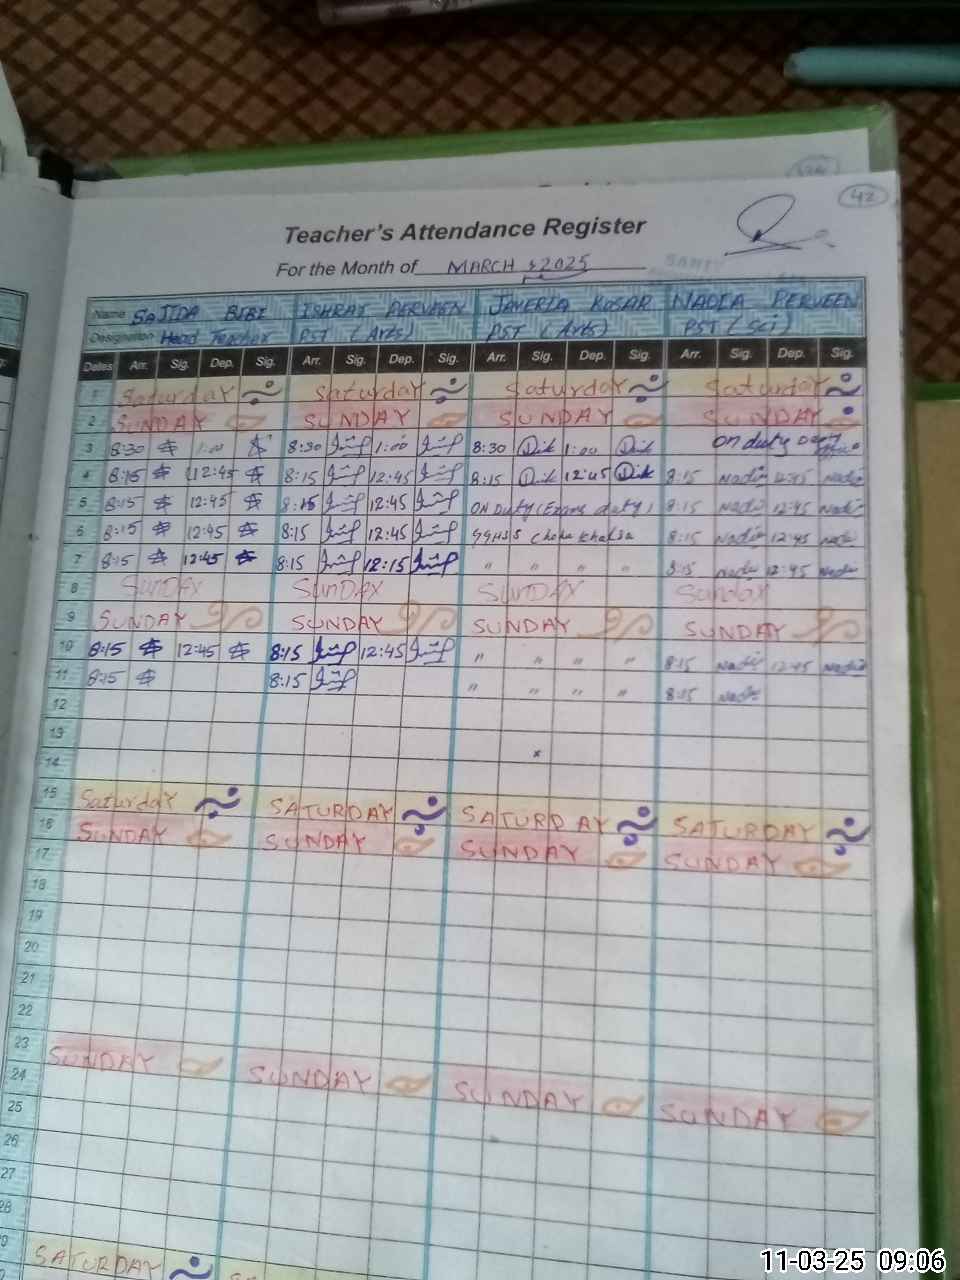 42
Teacher's Attendance Register
For the Month of MARCH 2025
Name SAJIDA BIBI ISHRAT PERVEEN JAVERIA KOSAR NADIA PERVEEN
Designation Head Teacher PST (Arts) PST (Arts) PST (Sci)
Dates Arr. Sig. Dep. Sig. Arr. Sig. Dep. Sig. Arr. Sig. Dep. Sig. Arr. Sig. Dep. Sig.
1 Saturday Saturday Saturday Saturday
2 SUNDAY SUNDAY SUNDAY SUNDAY
3 8:30 1:00 8:30 1:00 8:30 1:00 on duty
4 8:15 12:45 8:15 12:45 8:15 12:45 8:15 Nadia 12:45 Nadia
5 8:15 12:45 8:15 12:45 ON Duty (Exams duty) 8:15 Nadia 12:45 Nadia
6 8:15 12:45 8:15 12:45 GGHSS Choha Khalsa 8:15 Nadia 12:45 Nadia
7 8:15 12:45 8:15 12:15 " " " " 8:15 Nadia 12:45 Nadia
8 SunDAY SunDAY SunDAY Sunday
9 SUNDAY SUNDAY SUNDAY SUNDAY
10 8:15 12:45 8:15 12:45 " " " " 8:15 Nadia 12:45 Nadia
11 8:15 8:15 " " " " 8:15 Nadia
12
13
14
15 Saturday SATURDAY SATURDAY SATURDAY
16 SUNDAY SUNDAY SUNDAY SUNDAY
17
18
19
20
21
22
23 SUNDAY SUNDAY SUNDAY SUNDAY
24
25
26
27
28
SATURDAY
11-03-25 09:06